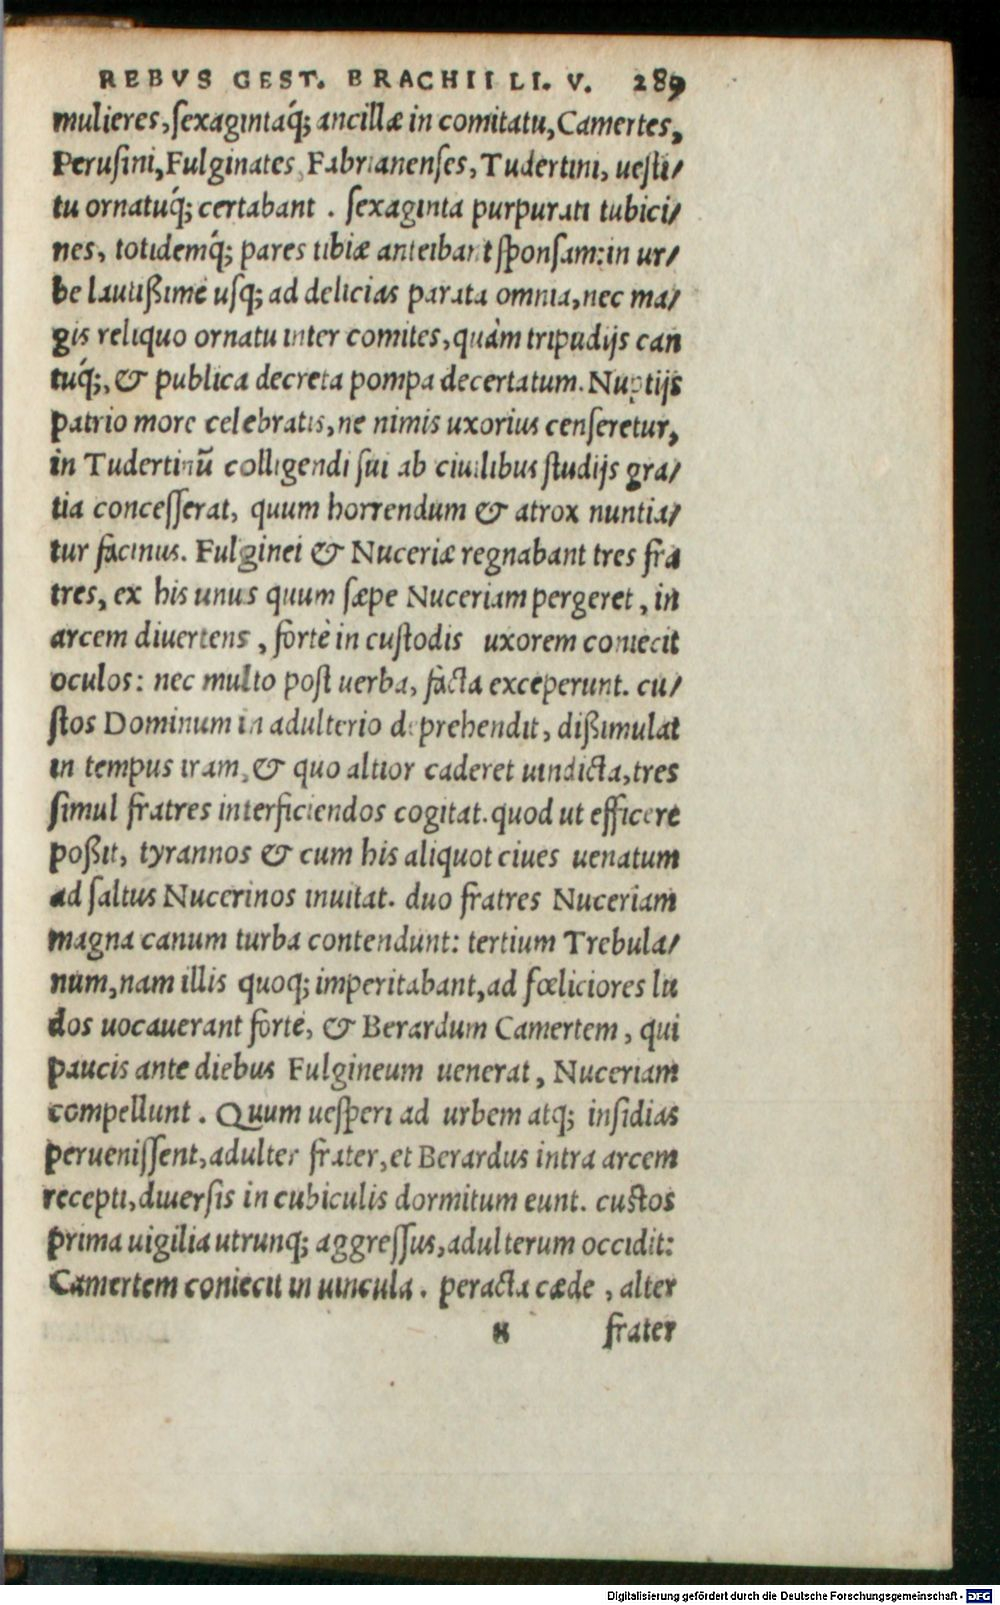 REBVS GEST. BRACHII LI. V. 289
mulieres, sexagintaq́; ancillæ in comitatu, Camertes,
Perusini, Fulginates, Fabrianenses, Tudertini, uesti/
tu ornatuq́; certabant . sexaginta purpurati tubici/
nes, totidemq́; pares tibiæ anteibant sponsam: in ur/
be lautißime usq; ad delicias parata omnia, nec ma/
gis reliquo ornatu inter comites, quàm tripudijs can
tuq́;, & publica decreta pompa decertatum. Nuptijs
patrio more celebratis, ne nimis uxorius censeretur,
in Tudertinū colligendi sui ab ciuilibus studijs gra/
tia concesserat, quum horrendum & atrox nuntia/
tur facinus. Fulginei & Nuceriæ regnabant tres fra
tres, ex his unus quum sæpe Nuceriam pergeret, in
arcem diuertens, fortè in custodis uxorem coniecit
oculos: nec multo post uerba, facta exceperunt. cu/
stos Dominum in adulterio deprehendit, dißimulat
in tempus iram, & quo altior caderet uindicta, tres
simul fratres interficiendos cogitat. quod ut efficere
poßit, tyrannos & cum his aliquot ciues uenatum
ad saltus Nucerinos inuitat. duo fratres Nuceriam
magna canum turba contendunt: tertium Trebula/
num, nam illis quoq; imperitabant, ad fœliciores lu
dos uocauerant forte, & Berardum Camertem, qui
paucis ante diebus Fulgineum uenerat, Nuceriam
compellunt. Quum uesperi ad urbem atq; insidias
peruenissent, adulter frater, et Berardus intra arcem
recepti, diuersis in cubiculis dormitum eunt. custos
prima uigilia utrunq; aggressus, adulterum occidit:
Camertem coniecit in uincula. peracta cæde, alter
frater
Digitalisierung gefördert durch die Deutsche Forschungsgemeinschaft - DFG